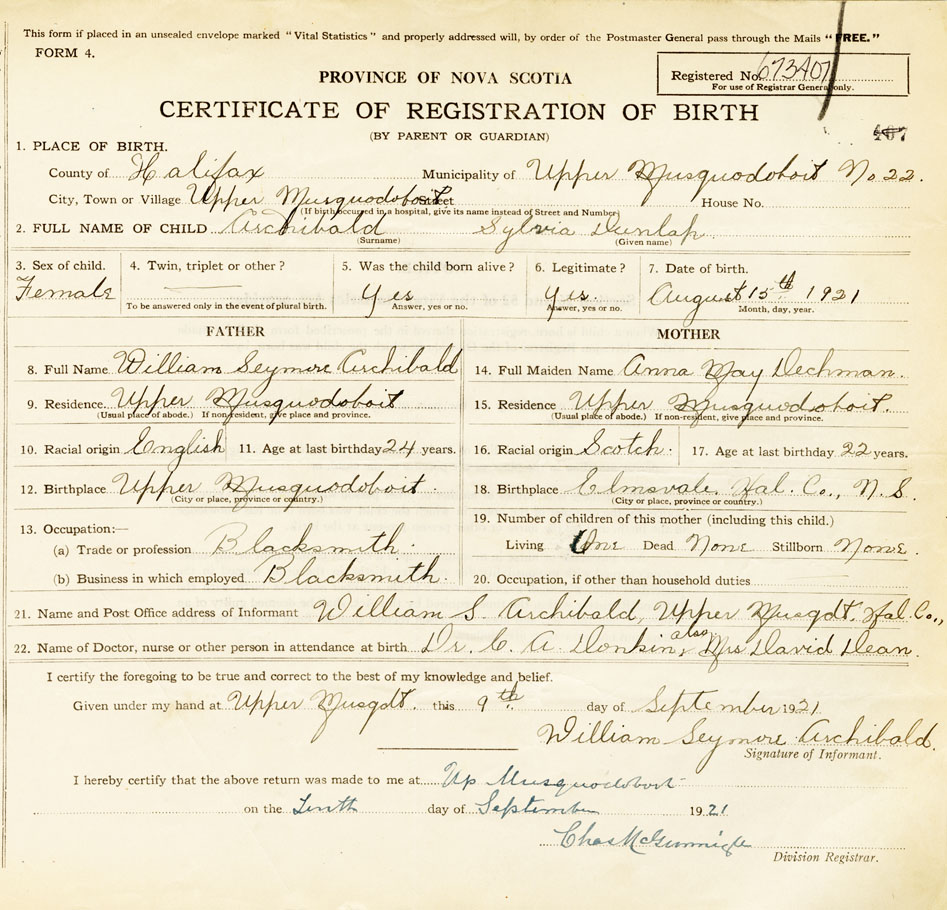 This form if placed in an unsealed envelope marked "Vital Statistics" and properly addressed will, by order of the Postmaster General pass through the Mails "FREE."
FORM 4.
PROVINCE OF NOVA SCOTIA
Registered No. 673407
For use of Registrar General only.
CERTIFICATE OF REGISTRATION OF BIRTH
(BY PARENT OR GUARDIAN)
1. PLACE OF BIRTH.
County of Halifax Municipality of Upper Musquodoboit No 22.
City, Town or Village Upper Musquodoboit Street House No.
(If birth occurred in a hospital, give its name instead of Street and Number)
2. FULL NAME OF CHILD Archibald Sylvia Dunlap
(Surname) (Given name)
3. Sex of child. 4. Twin, triplet or other? 5. Was the child born alive? 6. Legitimate? 7. Date of birth.
Female Yes Yes. August 15th 1921
To be answered only in the event of plural birth. Answer, yes or no. Answer, yes or no. Month, day, year.
FATHER MOTHER
8. Full Name William Seymore Archibald 14. Full Maiden Name Anna May Dechman.
9. Residence. Upper Musquodoboit 15. Residence Upper Musquodoboit.
(Usual place of abode.) If non-resident, give place and province. (Usual place of abode.) If non-resident, give place and province.
10. Racial origin English 11. Age at last birthday 24 years. 16. Racial origin Scotch. 17. Age at last birthday 22 years.
12. Birthplace Upper Musquodoboit. 18. Birthplace Elmsvale. Hal. Co., N. S.
(City or place, province or country.) (City or place, province or country.)
13. Occupation:— 19. Number of children of this mother (including this child.)
(a) Trade or profession Blacksmith. Living One Dead None Stillborn None.
(b) Business in which employed Blacksmith. 20. Occupation, if other than household duties
21. Name and Post Office address of Informant William S. Archibald, Upper Musqdt. Hal. Co.,
22. Name of Doctor, nurse or other person in attendance at birth Dr. C. A. Donkin, also Mrs David Dean.
I certify the foregoing to be true and correct to the best of my knowledge and belief.
Given under my hand at Upper Musqdt. this 9th day of September 1921
William Seymore Archibald.
Signature of Informant.
I hereby certify that the above return was made to me at Up Musquodoboit
on the Tenth day of September 1921
Chas McGunnigle
Division Registrar.